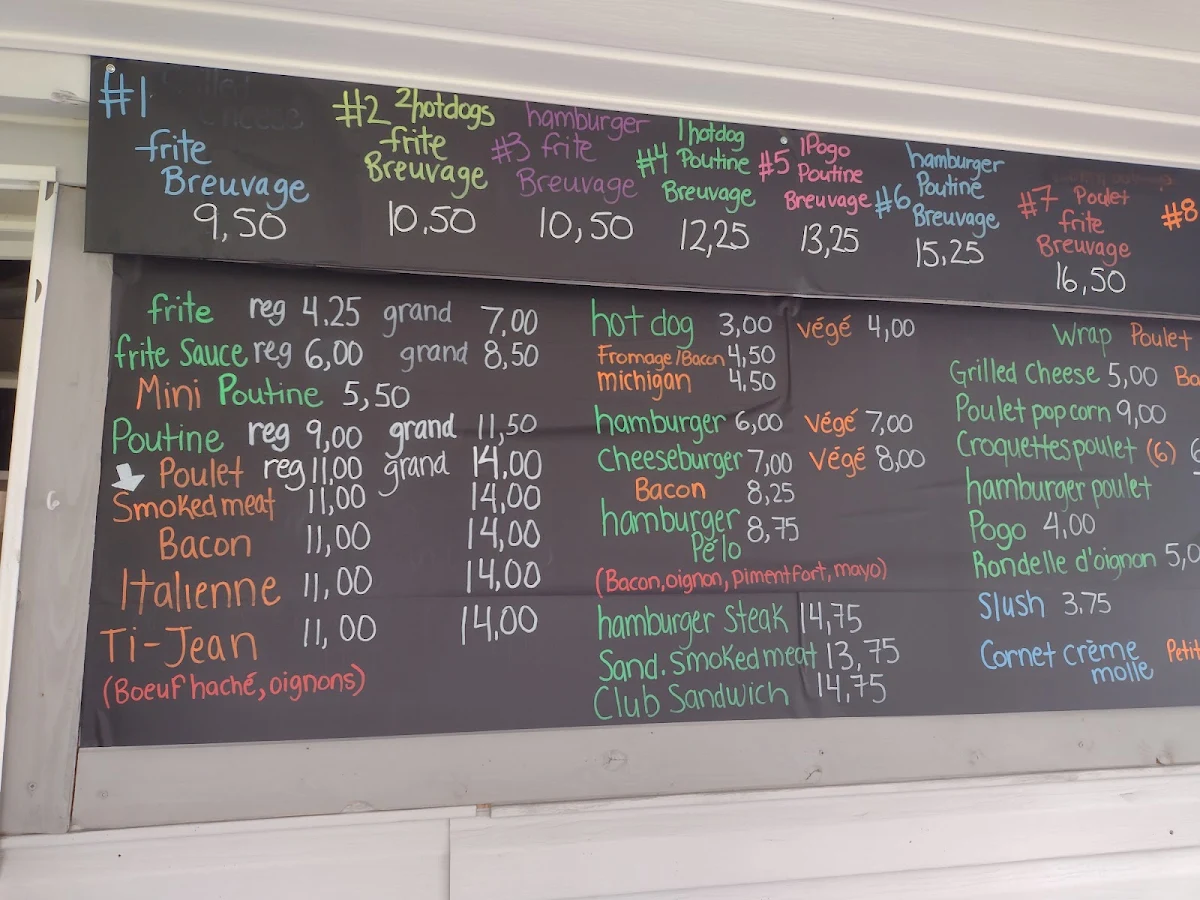 #1
frite
Breuvage
9,50
#2 2hotdogs
frite
Breuvage
10.50
hamburger
#3 frite
Breuvage
10,50
1hotdog
#4 Poutine
Breuvage
12,25
1Pogo
#5 Poutine
Breuvage
13,25
hamburger
Poutine
#6 Breuvage
15,25
#7 Poulet
frite
Breuvage
16,50
#8
frite reg 4.25 grand 7,00
frite Sauce reg 6,00 grand 8,50
Mini Poutine 5,50
Poutine reg 9,00 grand 11,50
Poulet reg 11.00 grand 14,00
Smoked meat 11,00 14,00
Bacon 11,00 14,00
Italienne 11,00 14,00
Ti-Jean 11,00 14,00
(Boeuf haché, oignons)
hot dog 3,00 végé 4,00
Fromage/Bacon 4,50
michigan 4,50
hamburger 6,00 végé 7,00
Cheeseburger 7,00 Végé 8,00
Bacon 8,25
hamburger 8,75
Pélo
(Bacon, oignon, piment fort, mayo)
hamburger Steak 14,75
Sand. Smoked meat 13,75
Club Sandwich 14,75
Wrap Poulet
Grilled Cheese 5,00 Ba
Poulet pop corn 9,00
Croquettes poulet (6) 6
hamburger poulet
Pogo 4,00
Rondelle d'oignon 5,0
Slush 3.75
Cornet crème Petit
molle